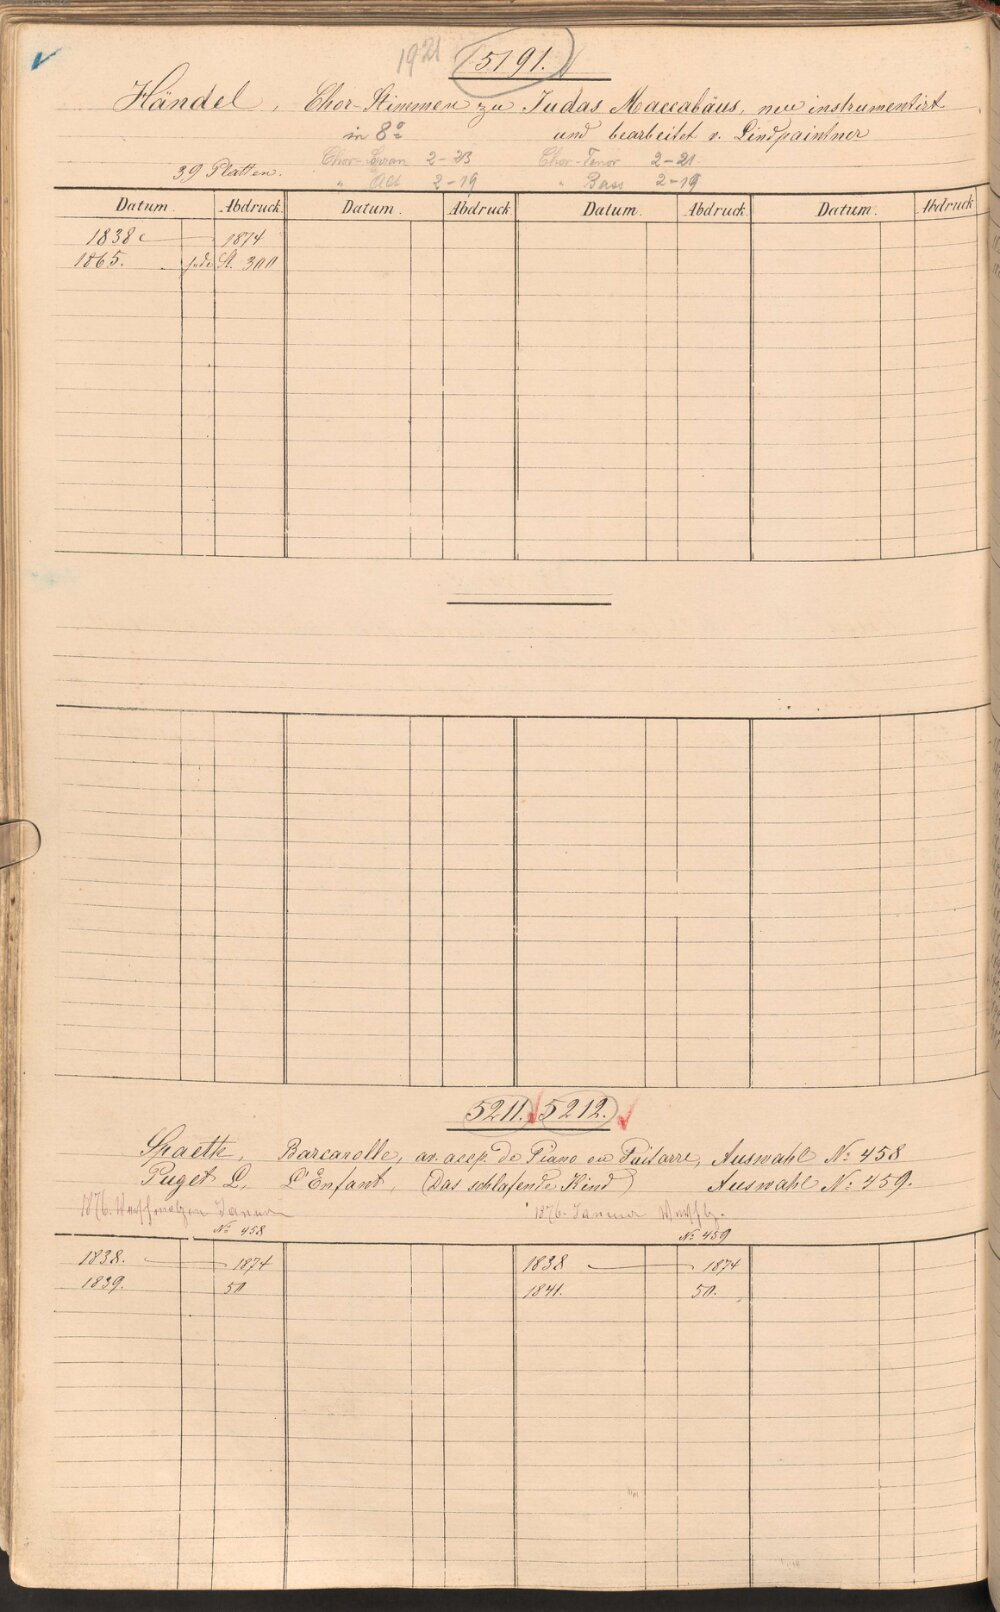 1921 5191.
Händel, Chor-Stimmen zu Judas Maccabäus, neu instrumentirt
in 8º und bearbeitet v. Lindpaintner
Chor-Sopran 2-23 Chor-Tenor 2-21
39 Platten. " Alt 2-19 " Bass 2-19
Datum. Abdruck. Datum. Abdruck Datum. Abdruck Datum. Abdruck
1838 — 1874
1865. jede St. 300
5211. 5212.
Spaeth, Barcarolle, av. accp. de Piano ou Guitarre, Auswahl Nº 458
Puget L. L'Enfant, (Das schlafende Kind) Auswahl Nº 459.
1876. Januar 1876. Januar
Nº 458 Nº 459
1838. — 1874 1838 — 1874
1839. 50 1841. 50.